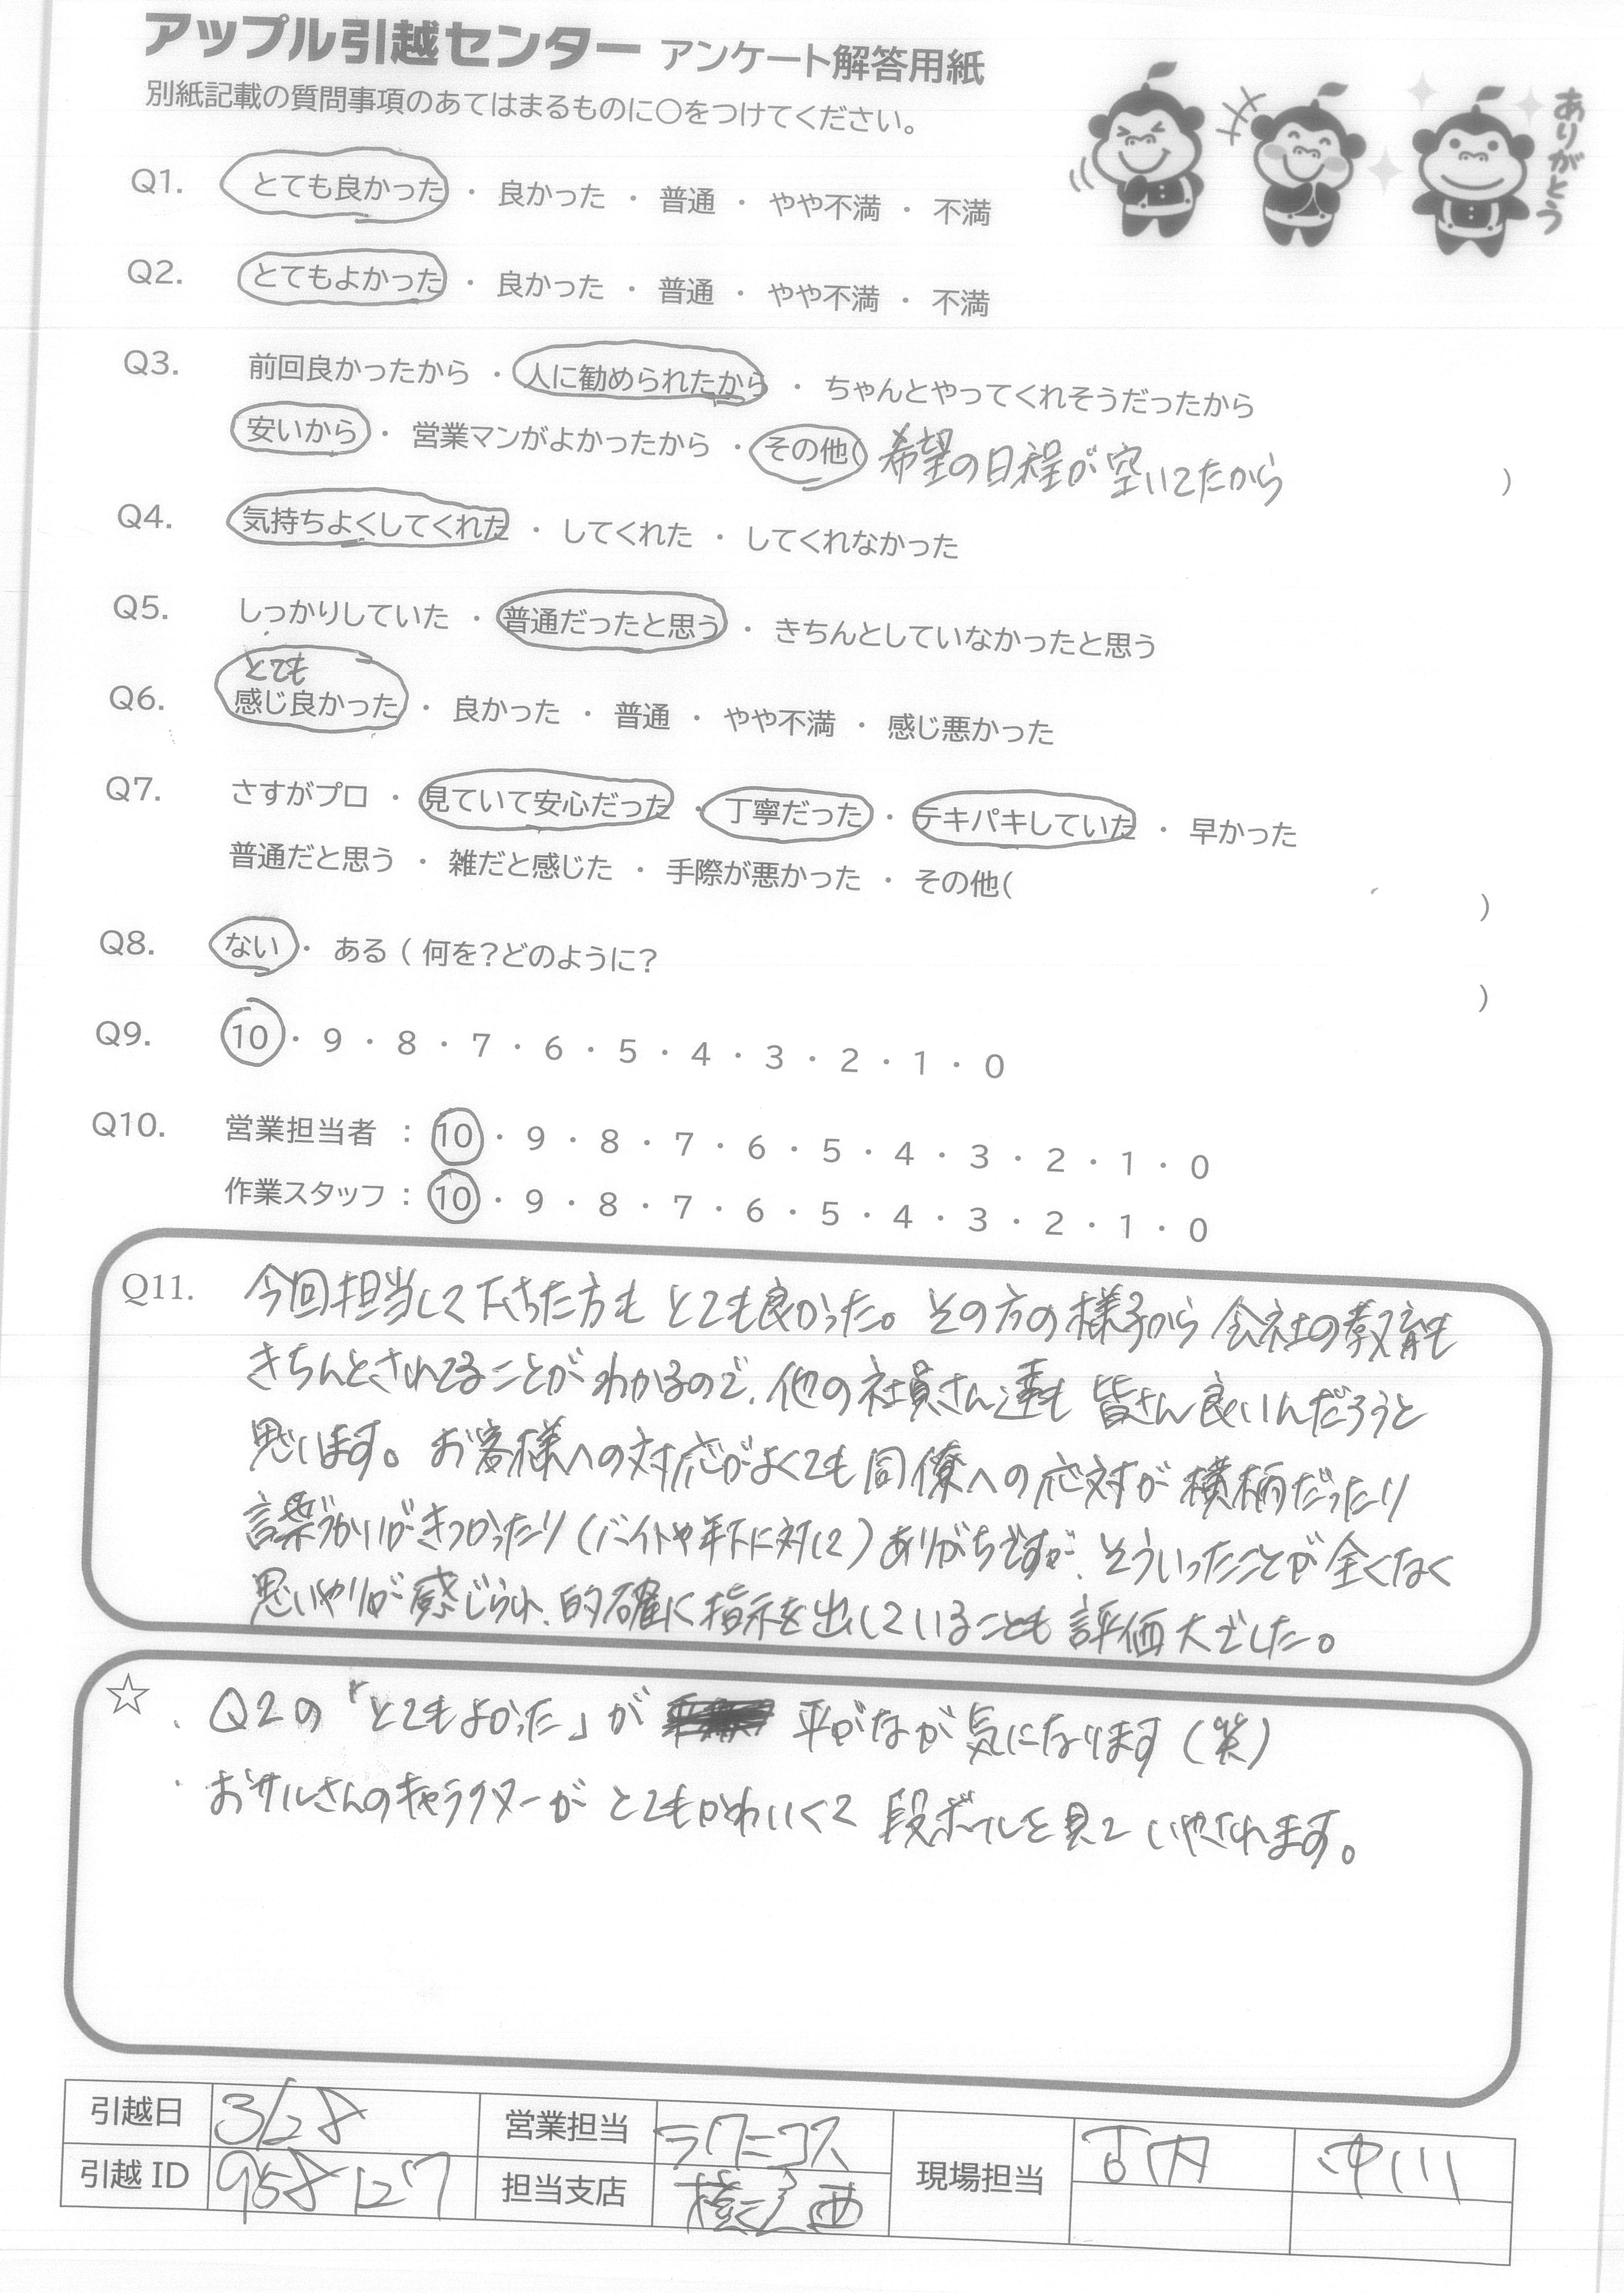 アップル引越センター アンケート解答用紙
別紙記載の質問事項のあてはまるものに○をつけてください。
ありがとう
Q1. とても良かった ・ 良かった ・ 普通 ・ やや不満 ・ 不満
Q2. とてもよかった ・ 良かった ・ 普通 ・ やや不満 ・ 不満
Q3. 前回良かったから ・ 人に勧められたから ・ ちゃんとやってくれそうだったから
安いから ・ 営業マンがよかったから ・ その他( 希望の日程が空いてたから )
Q4. 気持ちよくしてくれた ・ してくれた ・ してくれなかった
Q5. しっかりしていた ・ 普通だったと思う ・ きちんとしていなかったと思う
とても
Q6. 感じ良かった ・ 良かった ・ 普通 ・ やや不満 ・ 感じ悪かった
Q7. さすがプロ ・ 見ていて安心だった ・ 丁寧だった ・ テキパキしていた ・ 早かった
普通だと思う ・ 雑だと感じた ・ 手際が悪かった ・ その他( )
Q8. ない ・ ある ( 何を?どのように? )
Q9. 10 ・ 9 ・ 8 ・ 7 ・ 6 ・ 5 ・ 4 ・ 3 ・ 2 ・ 1 ・ 0
Q10. 営業担当者 : 10 ・ 9 ・ 8 ・ 7 ・ 6 ・ 5 ・ 4 ・ 3 ・ 2 ・ 1 ・ 0
作業スタッフ : 10 ・ 9 ・ 8 ・ 7 ・ 6 ・ 5 ・ 4 ・ 3 ・ 2 ・ 1 ・ 0
Q11. 今回担当して下さった方も とても良かった。その方の様子から 会社の教育も
きちんとされてることがわかるので、他の社員さん達も 皆さん良いんだろうと
思います。お客様への対応がよくても同僚への応対が横柄だったり
言葉づかいがきつかったり(バイトや年下に対して)ありがちですが、そういったことが全くなく
思いやりが感じられ、的確に指示を出していることも評価大でした。
☆ ・Q2の「とてもよかった」が 平がなが気になります(笑)
・おサルさんのキャラクターが とてもかわいくて 段ボールを見ていやされます。
引越日 3/28 営業担当 ラクニコス 現場担当 古内 中川
引越ID 958127 担当支店 横浜西